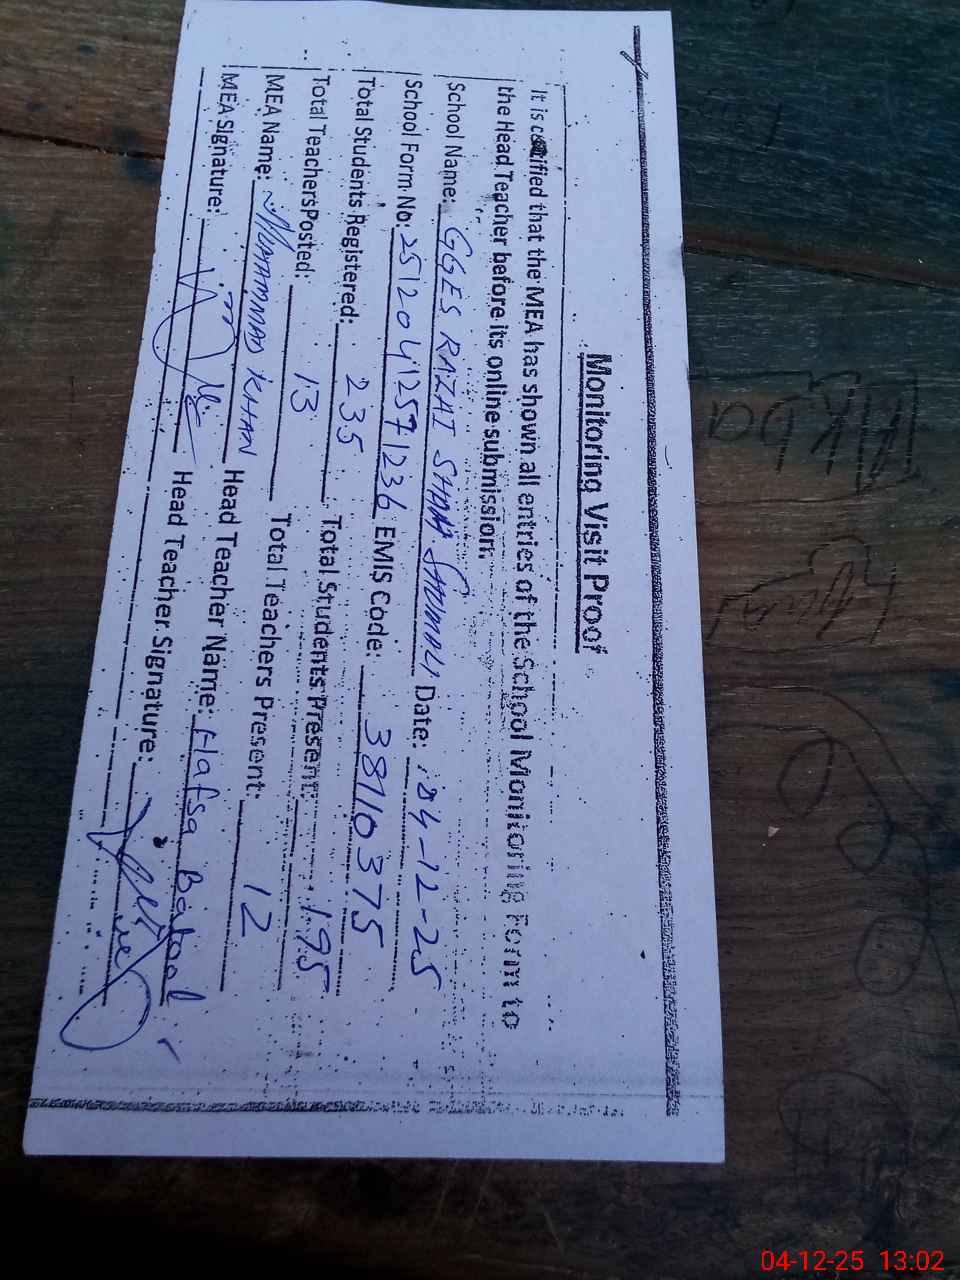 Monitoring Visit Proof
It is certified that the MEA has shown all entries of the School Monitoring Form to
the Head Teacher before its online submission.
School Name: GGES RAZAI SHAH SHUMALI Date: 04-12-25
School Form No: 251204125971236 EMIS Code: 38110375
Total Students Registered: 235 Total Students Present: 195
Total Teachers Posted: 13 Total Teachers Present: 12
MEA Name: MUHAMMAD KHAN Head Teacher Name: Hafsa Batool
MEA Signature: Head Teacher Signature:
04-12-25 13:02